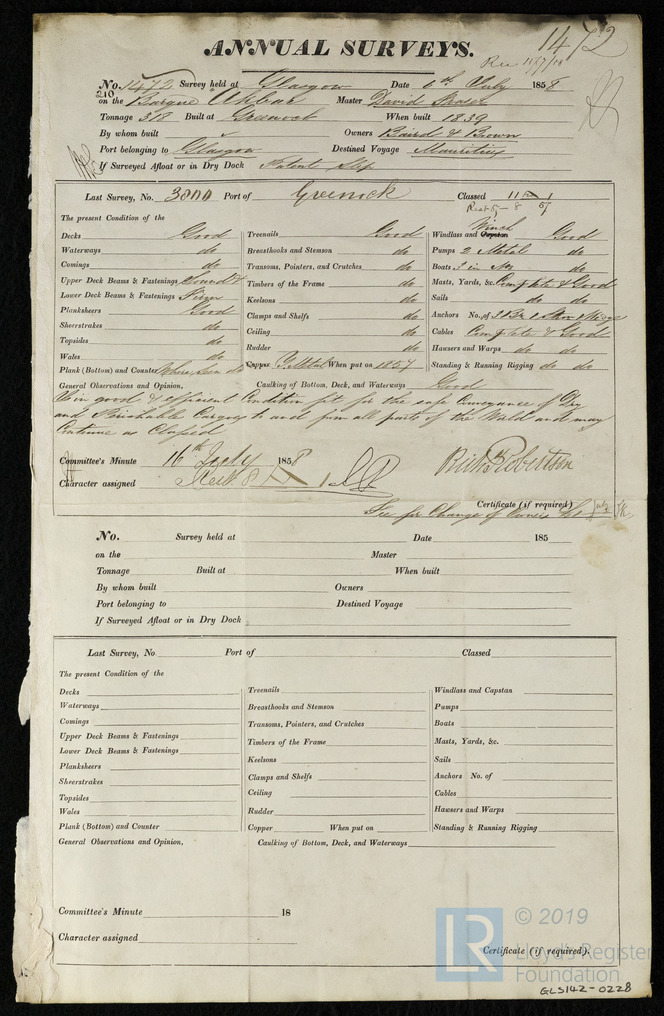 ANNUAL SURVEYS.
1472
No. 1472 Survey held at Glasgow Date 6th July 1858
210
on the Barque Akbar Master David
Tonnage 318 Built at Greenock When built 1839
By whom built Owners Baird & Brown
Port belonging to Glasgow Destined Voyage Mauritius
If Surveyed Afloat or in Dry Dock Patent Slip
Last Survey, No. 3800 Port of Greenock Classed
The present Condition of the
Decks Good
Waterways do
Comings do
Upper Deck Beams & Fastenings Sound &
Lower Deck Beams & Fastenings Firm
Planksheers Good
Sheerstrakes do
Topsides do
Wales do
Plank (Bottom) and Counter Where seen do
Treenails Good
Breasthooks and Stemson do
Transoms, Pointers, and Crutches do
Timbers of the Frame do
Keelsons do
Clamps and Shelfs do
Ceiling do
Rudder do
Copper Y. Metal When put on 1857
Winch
Windlass and Capstan Good
Pumps 2 Metal do
Boats 3 in No do
Masts, Yards, &c. Complete & Good
Sails do do
Anchors No. of 3 Br 1 Stm
Cables Complete & Good
Hawsers and Warps do do
Standing & Running Rigging do do
General Observations and Opinion. Caulking of Bottom, Deck, and Waterways Good
Is in good & efficient Condition fit for the safe Conveyance of Dry
and Perishable Cargoes to and from all parts of the World and may
Continue as Classed
Committee's Minute 16th July 1858
Character assigned
Robertson
Certificate (if required)
See for Change of Owners
No. Survey held at Date 185
on the Master
Tonnage Built at When built
By whom built Owners
Port belonging to Destined Voyage
If Surveyed Afloat or in Dry Dock
Last Survey, No Port of Classed
The present Condition of the
Decks
Waterways
Comings
Upper Deck Beams & Fastenings
Lower Deck Beams & Fastenings
Planksheers
Sheerstrakes
Topsides
Wales
Plank (Bottom) and Counter
Treenails
Breasthooks and Stemson
Transoms, Pointers, and Crutches
Timbers of the Frame
Keelsons
Clamps and Shelfs
Ceiling
Rudder
Copper When put on
Windlass and Capstan
Pumps
Boats
Masts, Yards, &c.
Sails
Anchors No. of
Cables
Hawsers and Warps
Standing & Running Rigging
General Observations and Opinion. Caulking of Bottom, Deck, and Waterways
Committee's Minute 18
Character assigned
Certificate (if required).
LR © 2019
Lloyd's Register
Foundation
GLS142-0228